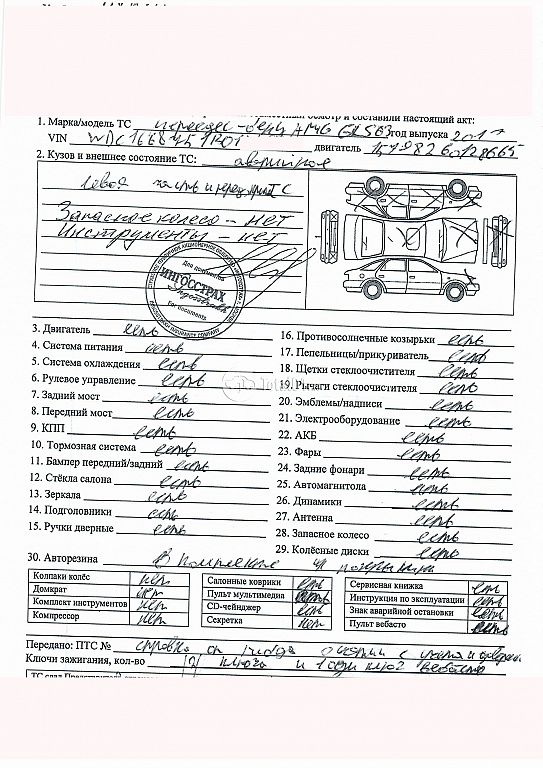 осмотр и составили настоящий акт:
1. Марка/модель ТС Мерседес-Бенц AMG GLS63 год выпуска 2017
VIN двигатель 15798260128665
2. Кузов и внешнее состояние ТС: аварийное
Левая часть и перед ТС
Запасное колесо - нет
Инструменты - нет
Для документов
ИНГОССТРАХ
Ingosstrakh
For documents
3. Двигатель есть
4. Система питания есть
5. Система охлаждения есть
6. Рулевое управление есть
7. Задний мост есть
8. Передний мост есть
9. КПП есть
10. Тормозная система есть
11. Бампер передний/задний есть
12. Стёкла салона есть
13. Зеркала есть
14. Подголовники есть
15. Ручки дверные есть
16. Противосолнечные козырьки есть
17. Пепельницы/прикуриватель есть
18. Щетки стеклоочистителя есть
19. Рычаги стеклоочистителя есть
20. Эмблемы/надписи есть
21. Электрооборудование есть
22. АКБ есть
23. Фары есть
24. Задние фонари есть
25. Автомагнитола есть
26. Динамики есть
27. Антенна есть
28. Запасное колесо есть
29. Колёсные диски есть
30. Авторезина В комплекте
Колпаки колёс нет
Домкрат нет
Комплект инструментов нет
Компрессор нет
Салонные коврики есть
Пульт мультимедиа есть
CD-чейнджер есть
Секретка нет
Сервисная книжка есть
Инструкция по эксплуатации есть
Знак аварийной остановки есть
Пульт вебасто есть
Передано: ПТС № справка
Ключи зажигания, кол-во ключа и 1 один ключ вебасто